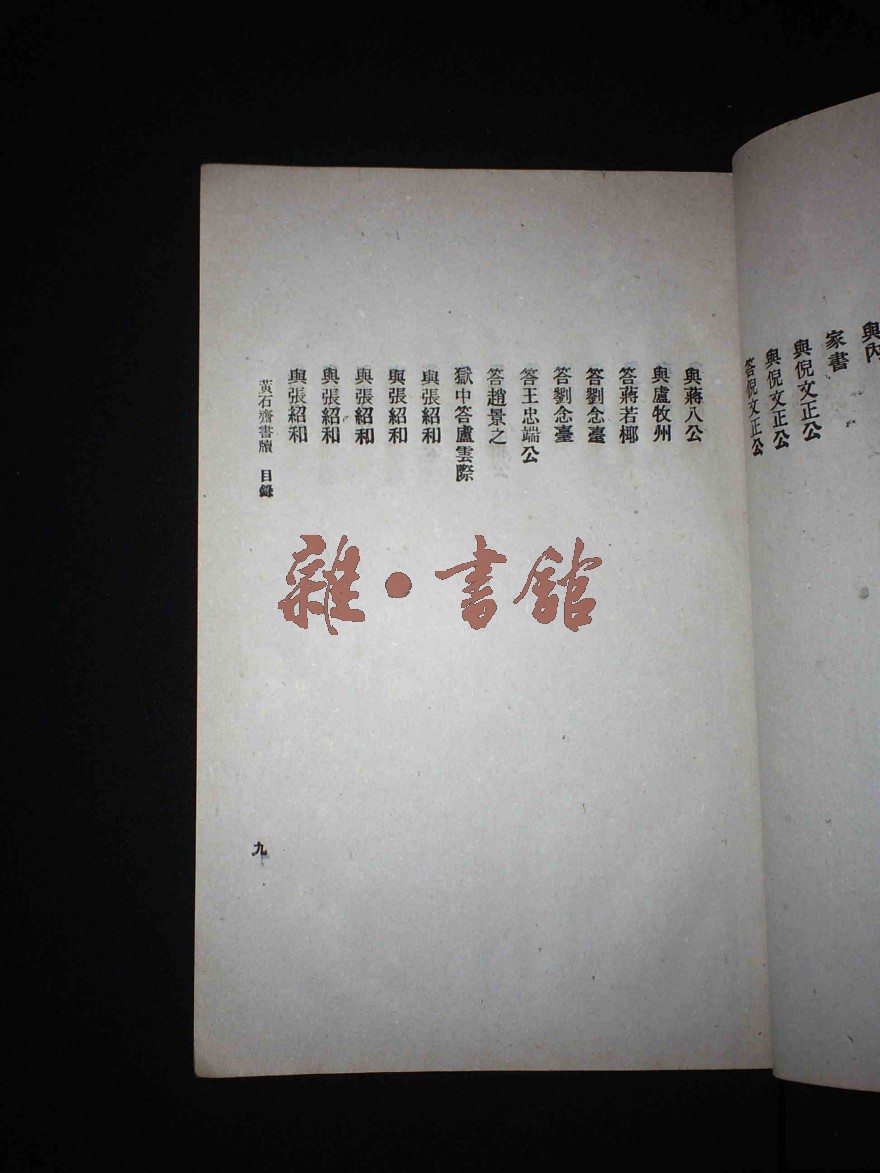 與內
家書
與倪文正公
與倪文正公
答倪文正公
與蔣八公
與盧牧州
答蔣若椰
答劉念臺
答劉念臺
答王忠端公
答趙景之
獄中答盧雲際
與張紹和
與張紹和
與張紹和
與張紹和
與張紹和
黃石齋書牘 目錄
九
雜·書館